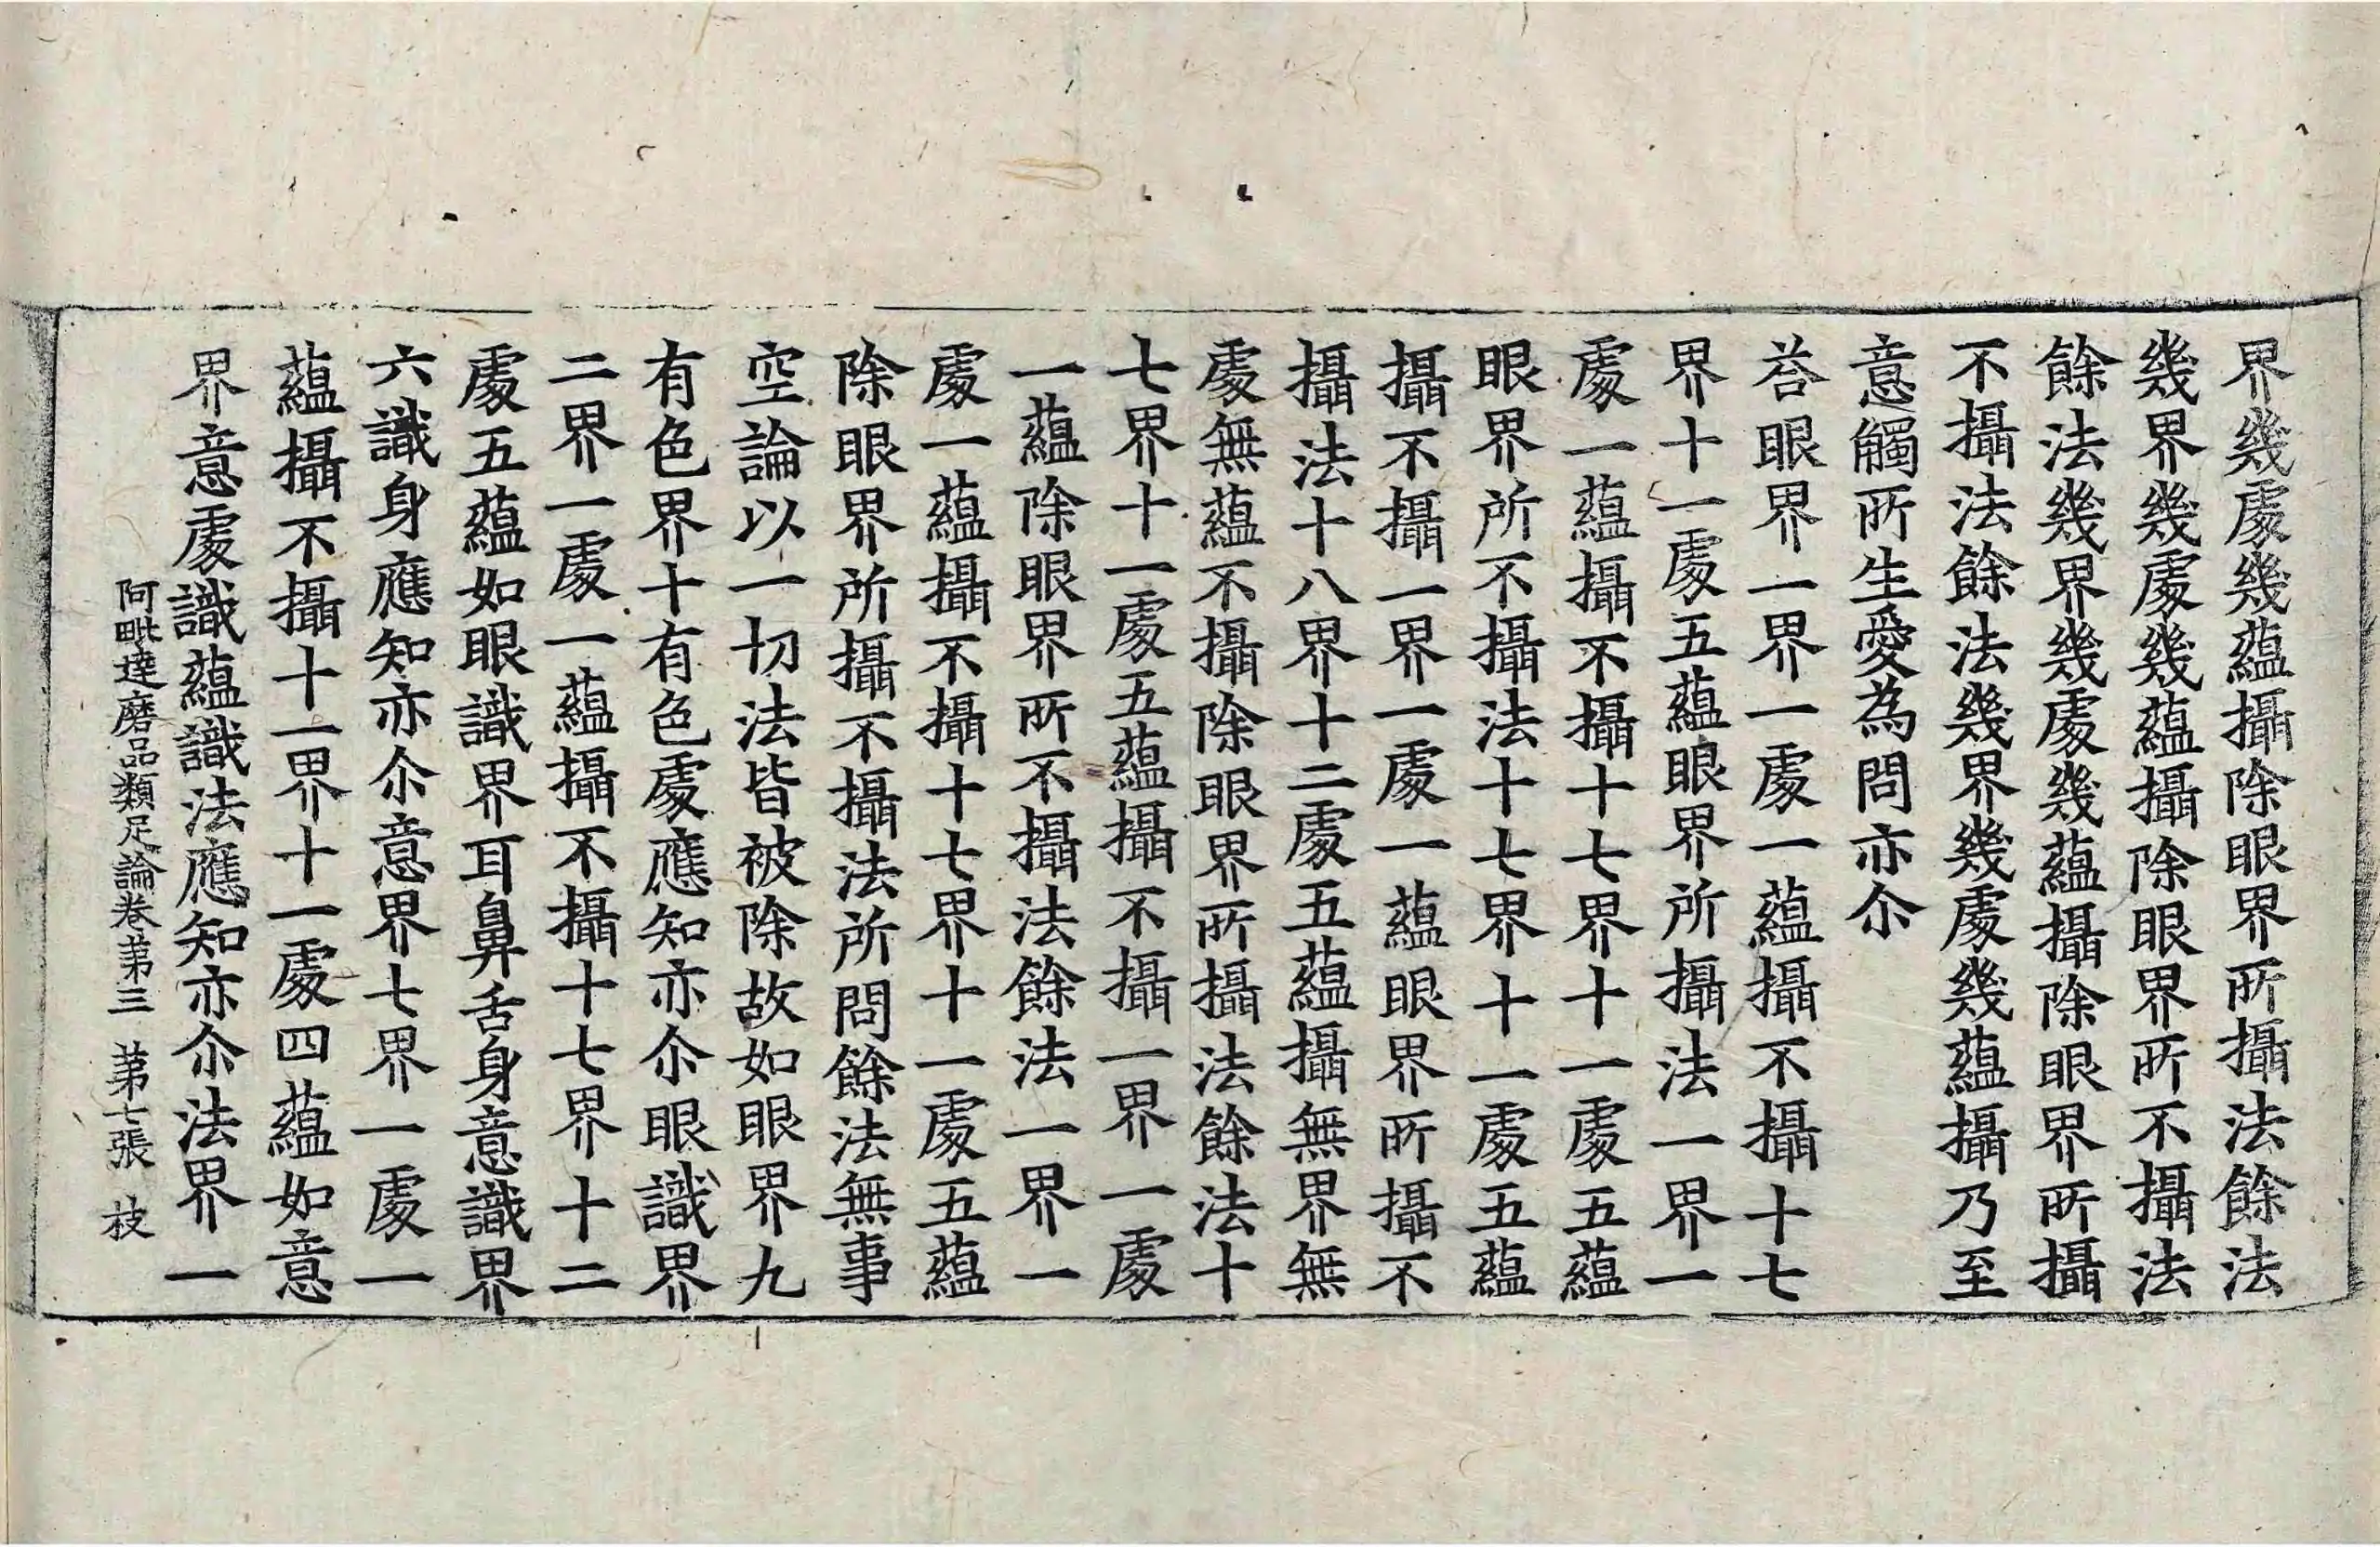 界幾處幾蘊攝除眼界所攝法餘法
幾界幾處幾蘊攝除眼界所不攝法
餘法幾界幾處幾蘊攝除眼界所攝
不攝法餘法幾界幾處幾蘊攝乃至
意觸所生愛為問亦尒
荅眼界一界一處一蘊攝不攝十七
界十一處五蘊眼界所攝法一界一
處一蘊攝不攝十七界十一處五蘊
眼界所不攝法十七界十一處五蘊
攝不攝一界一處一蘊眼界所攝不
攝法十八界十二處五蘊攝無界無
處無蘊不攝除眼界所攝法餘法十
七界十一處五蘊攝不攝一界一處
一蘊除眼界所不攝法餘法一界一
處一蘊攝不攝十七界十一處五蘊
除眼界所攝不攝法所問餘法無事
空論以一切法皆被除故如眼界九
有色界十有色處應知亦尒眼識界
二界一處一蘊攝不攝十七界十二
處五蘊如眼識界耳鼻舌身意識界
六識身應知亦尒意界七界一處一
蘊攝不攝十一界十一處四蘊如意
界意處識蘊識法應知亦尒法界一
阿毗達磨品類足論卷第三 第七張 枝